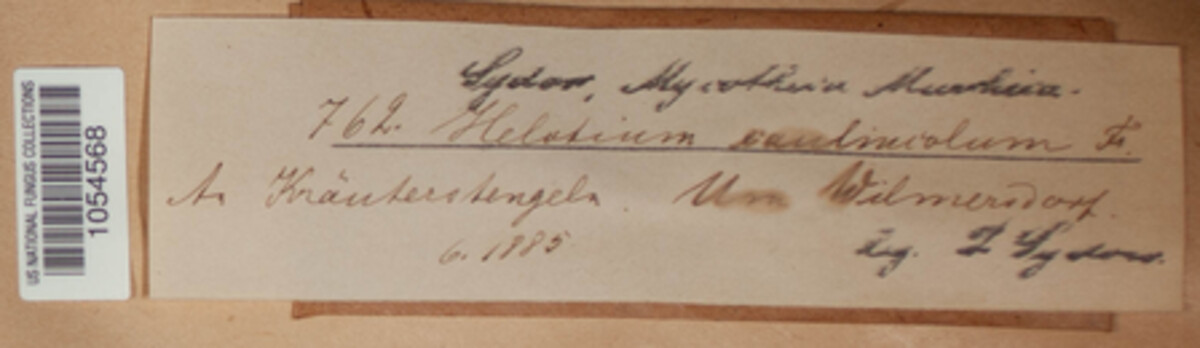 US NATIONAL FUNGUS COLLECTIONS
1054568
Sydow, Mycotheca Marchica.
762. Helotium caulincolum Fr.
An Kräuterstengeln. Um Wilmersdorf.
6. 1885
leg. P Sydow.